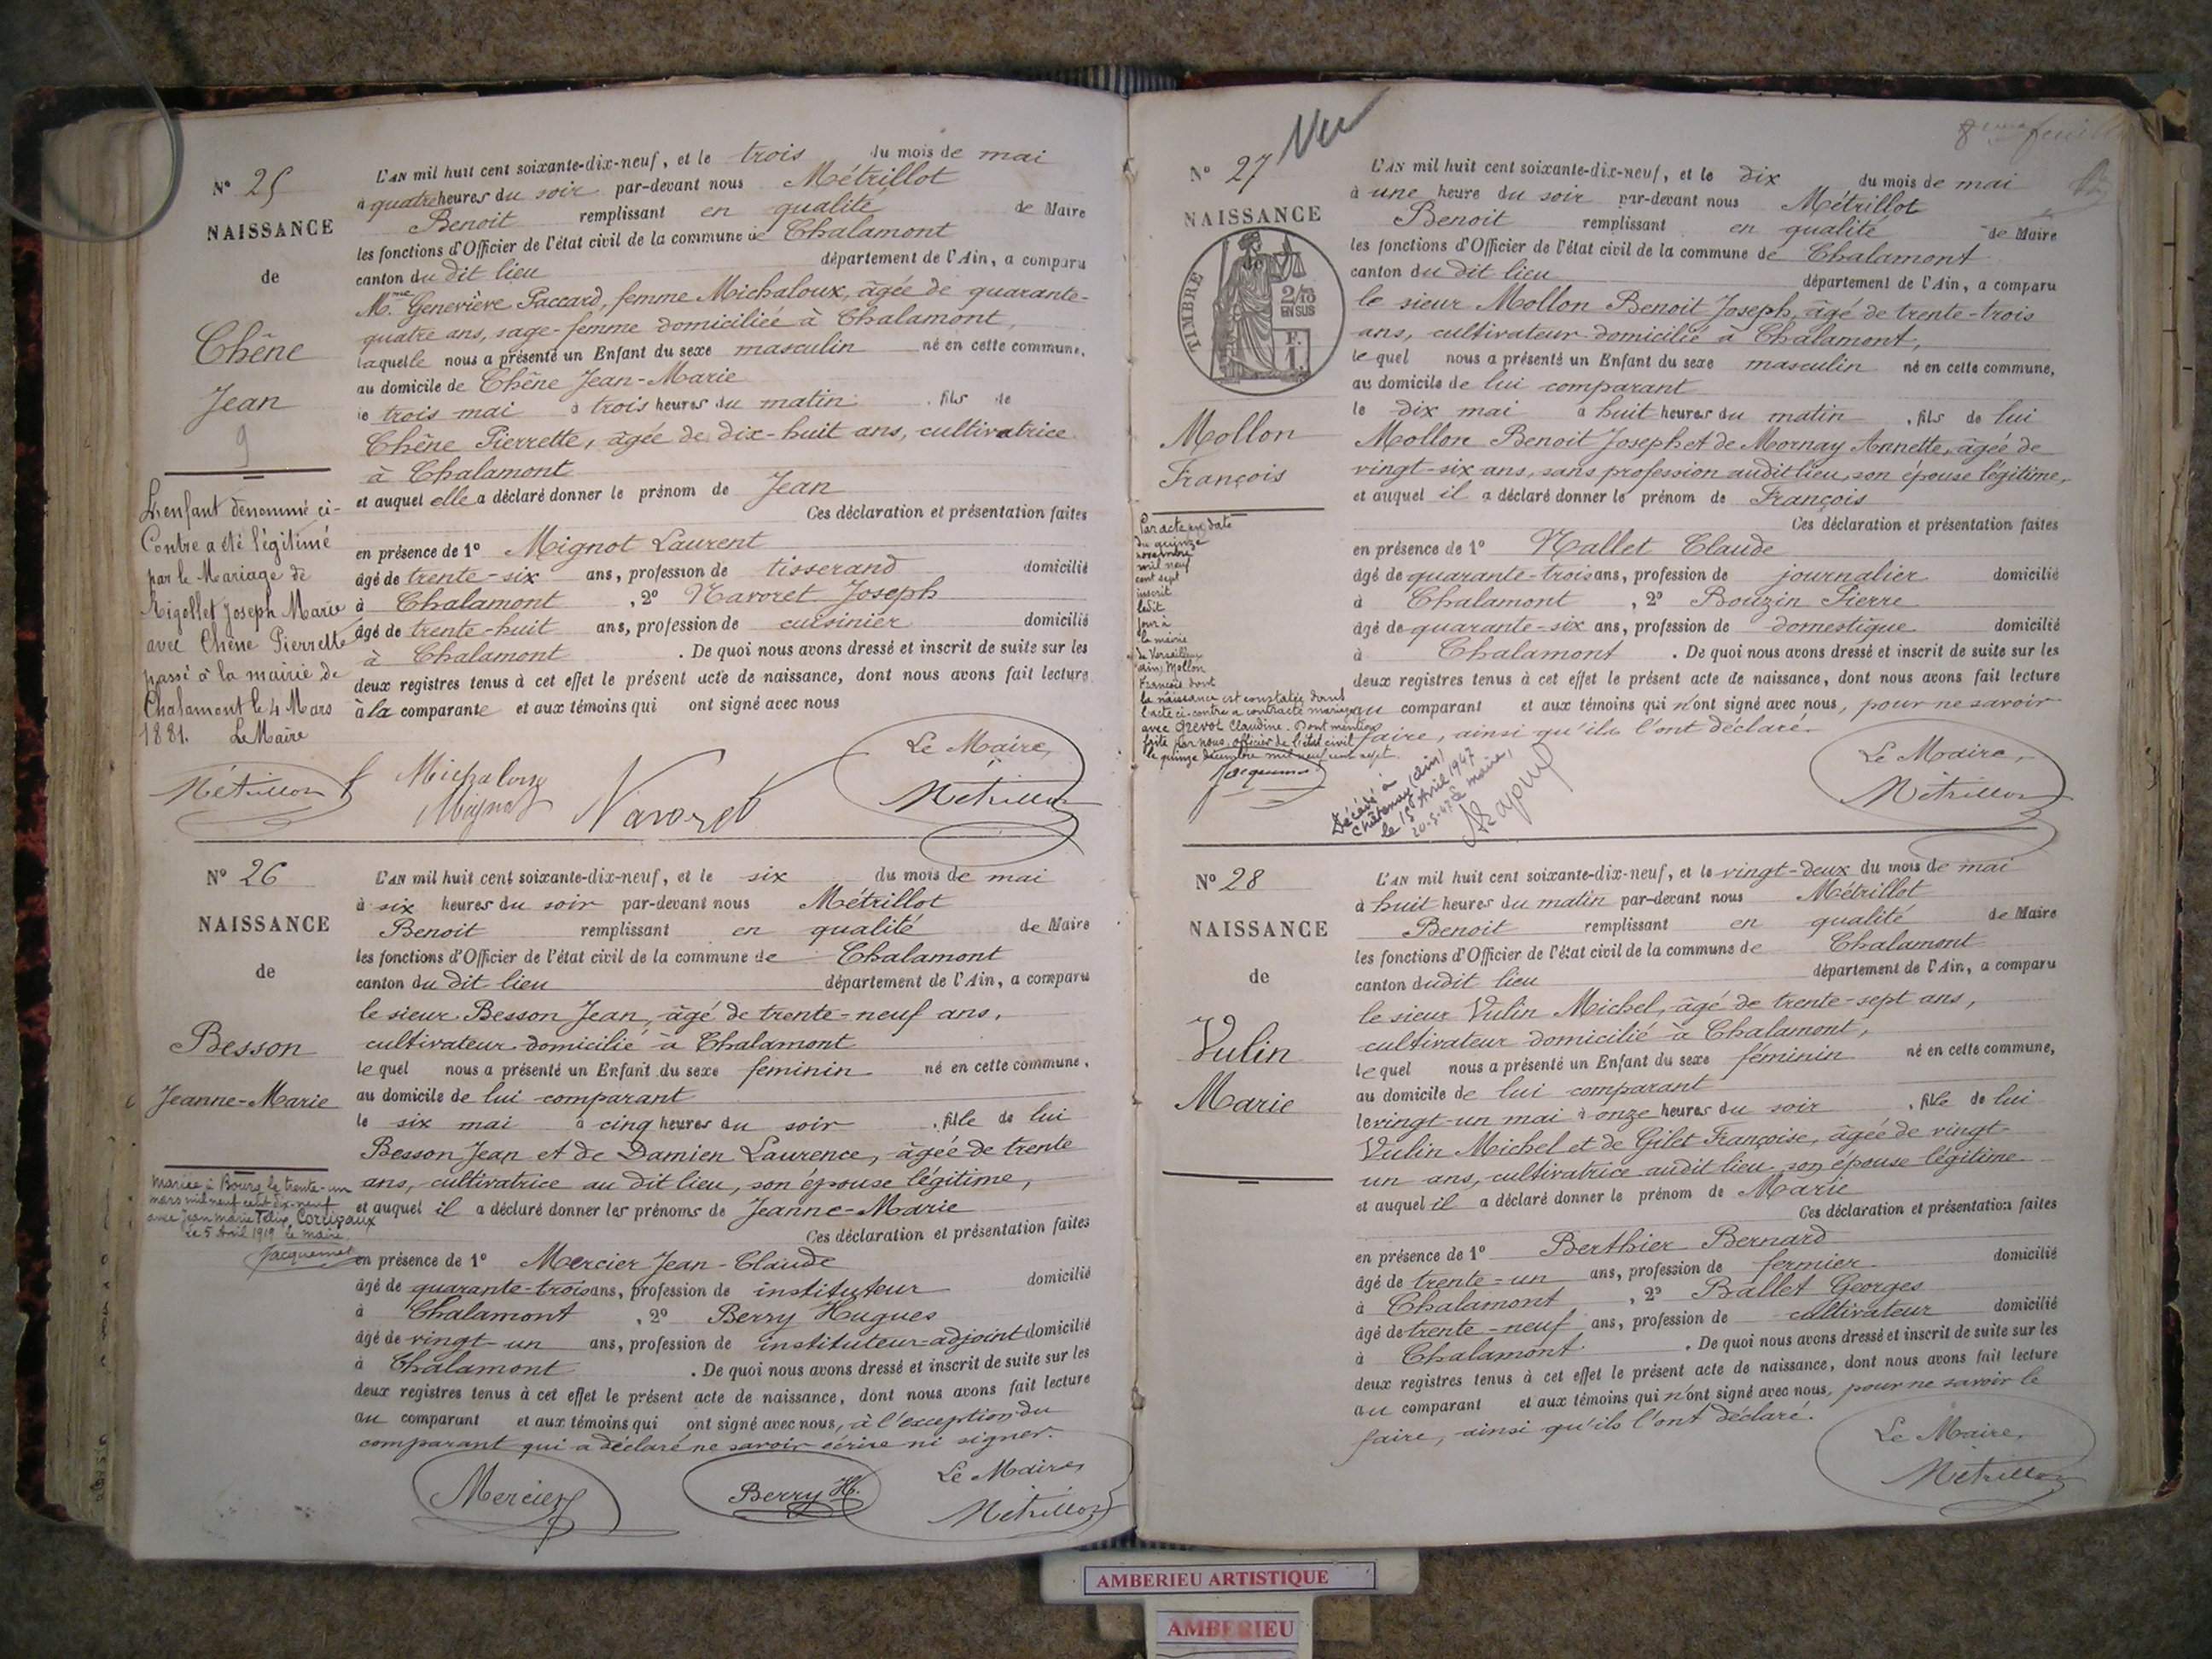 N° 25
NAISSANCE
de
Chêne
Jean
9
L'enfant dénommé ci-
Contre a été légitimé
par le Mariage de
Rigollet Joseph Marie
avec Chêne Pierrette
passé à la mairie de
Chalamont le 4 Mars
1881. Le Maire
Métrillot
L'AN mil huit cent soixante-dix-neuf, et le trois du mois de mai
à quatre heures du soir par-devant nous Métrillot
Benoit remplissant en qualité de Maire
les fonctions d'Officier de l'état civil de la commune de Chalamont
canton du dit lieu département de l'Ain, a comparu
Mme Geneviève Paccard, femme Michaloux, âgée de quarante-
quatre ans, sage-femme domiciliée à Chalamont,
laquelle nous a présenté un Enfant du sexe masculin né en cette commune,
au domicile de Chêne Jean-Marie
le trois mai à trois heures du matin, fils de
Chêne Pierrette, âgée de dix-huit ans, cultivatrice
à Chalamont
et auquel elle a déclaré donner le prénom de Jean
Ces déclaration et présentation faites
en présence de 1° Mignot Laurent
âgé de trente-six ans, profession de tisserand domicilié
à Chalamont, 2° Navoret Joseph
âgé de trente-huit ans, profession de cuisinier domicilié
à Chalamont. De quoi nous avons dressé et inscrit de suite sur les
deux registres tenus à cet effet le présent acte de naissance, dont nous avons fait lecture
à la comparante et aux témoins qui ont signé avec nous
Le Maire,
Michaloux
Mignot
Navoret
Métrillot
N° 26
NAISSANCE
de
Besson
Jeanne-Marie
mariée à Bourg le trente-un
mars mil neuf cent dix-neuf
avec Jean Marie Félix, Corrigaux
Le 5 Avril 1919 le maire,
Jacquemet
L'AN mil huit cent soixante-dix-neuf, et le six du mois de mai
à six heures du soir par-devant nous Métrillot
Benoit remplissant en qualité de Maire
les fonctions d'Officier de l'état civil de la commune de Chalamont
canton du dit lieu département de l'Ain, a comparu
le sieur Besson Jean, âgé de trente-neuf ans,
cultivateur domicilié à Chalamont
lequel nous a présenté un Enfant du sexe féminin né en cette commune,
au domicile de lui comparant
le six mai à cinq heures du soir, fille de lui
Besson Jean et de Damien Laurence, âgée de trente
ans, cultivatrice au dit lieu, son épouse légitime,
et auquel il a déclaré donner les prénoms de Jeanne-Marie
Ces déclaration et présentation faites
en présence de 1° Mercier Jean-Claude
âgé de quarante-trois ans, profession de instituteur domicilié
à Chalamont, 2° Berry Hugues
âgé de vingt-un ans, profession de instituteur-adjoint domicilié
à Chalamont. De quoi nous avons dressé et inscrit de suite sur les
deux registres tenus à cet effet le présent acte de naissance, dont nous avons fait lecture
au comparant et aux témoins qui ont signé avec nous, à l'exception du
comparant qui a déclaré ne savoir écrire ni signer.
Le Maire,
Mercier
Berry H.
Métrillot
8me feuillet
Vu
N° 27
NAISSANCE
TIMBRE
2/10
EN SUS
F.
1.
Mollon
François
Par acte en date
du quinze
novembre
mil neuf
cent sept
inscrit
ledit
jour à
la mairie
de Versailleux
(Ain) Mollon
François dont
la naissance est constatée dans
l'acte ci-contre a contracté mariage
avec Prevot Claudine. Dont mention
faite par nous, officier de l'état civil
le quinze décembre mil neuf cent sept.
Jacquemet
L'AN mil huit cent soixante-dix-neuf, et le dix du mois de mai
à une heure du soir par-devant nous Métrillot
Benoit remplissant en qualité de Maire
les fonctions d'Officier de l'état civil de la commune de Chalamont
canton du dit lieu département de l'Ain, a comparu
le sieur Mollon Benoit Joseph, âgé de trente-trois
ans, cultivateur domicilié à Chalamont,
lequel nous a présenté un Enfant du sexe masculin né en cette commune,
au domicile de lui comparant
le dix mai à huit heures du matin, fils de lui
Mollon Benoit Joseph et de Mornay Annette, âgée de
vingt-six ans, sans profession audit lieu, son épouse légitime,
et auquel il a déclaré donner le prénom de François
Ces déclaration et présentation faites
en présence de 1° Nallet Claude
âgé de quarante-trois ans, profession de journalier domicilié
à Chalamont, 2° Bouzin Pierre
âgé de quarante-six ans, profession de domestique domicilié
à Chalamont. De quoi nous avons dressé et inscrit de suite sur les
deux registres tenus à cet effet le présent acte de naissance, dont nous avons fait lecture
au comparant et aux témoins qui n'ont signé avec nous, pour ne savoir
faire, ainsi qu'ils l'ont déclaré.
Le Maire,
Métrillot
Décédé à
Châtenay (Ain)
le 15 Avril 1947
20-5-47 Le maire,
N° 28
NAISSANCE
de
Vulin
Marie
L'AN mil huit cent soixante-dix-neuf, et le vingt-deux du mois de mai
à huit heures du matin par-devant nous Métrillot
Benoit remplissant en qualité de Maire
les fonctions d'Officier de l'état civil de la commune de Chalamont
canton dudit lieu département de l'Ain, a comparu
le sieur Vulin Michel, âgé de trente-sept ans,
cultivateur domicilié à Chalamont,
lequel nous a présenté un Enfant du sexe féminin né en cette commune,
au domicile de lui comparant
le vingt-un mai à onze heures du soir, fille de lui
Vulin Michel et de Gilet Françoise, âgée de vingt-
un ans, cultivatrice audit lieu son épouse légitime
et auquel il a déclaré donner le prénom de Marie
Ces déclaration et présentation faites
en présence de 1° Berthier Bernard domicilié
âgé de trente-un ans, profession de fermier
à Chalamont, 2° Ballet Georges
âgé de trente-neuf ans, profession de cultivateur domicilié
à Chalamont. De quoi nous avons dressé et inscrit de suite sur les
deux registres tenus à cet effet le présent acte de naissance, dont nous avons fait lecture
au comparant et aux témoins qui n'ont signé avec nous, pour ne savoir le
faire, ainsi qu'ils l'ont déclaré.
Le Maire,
Métrillot
AMBERIEU ARTISTIQUE
AMBERIEU